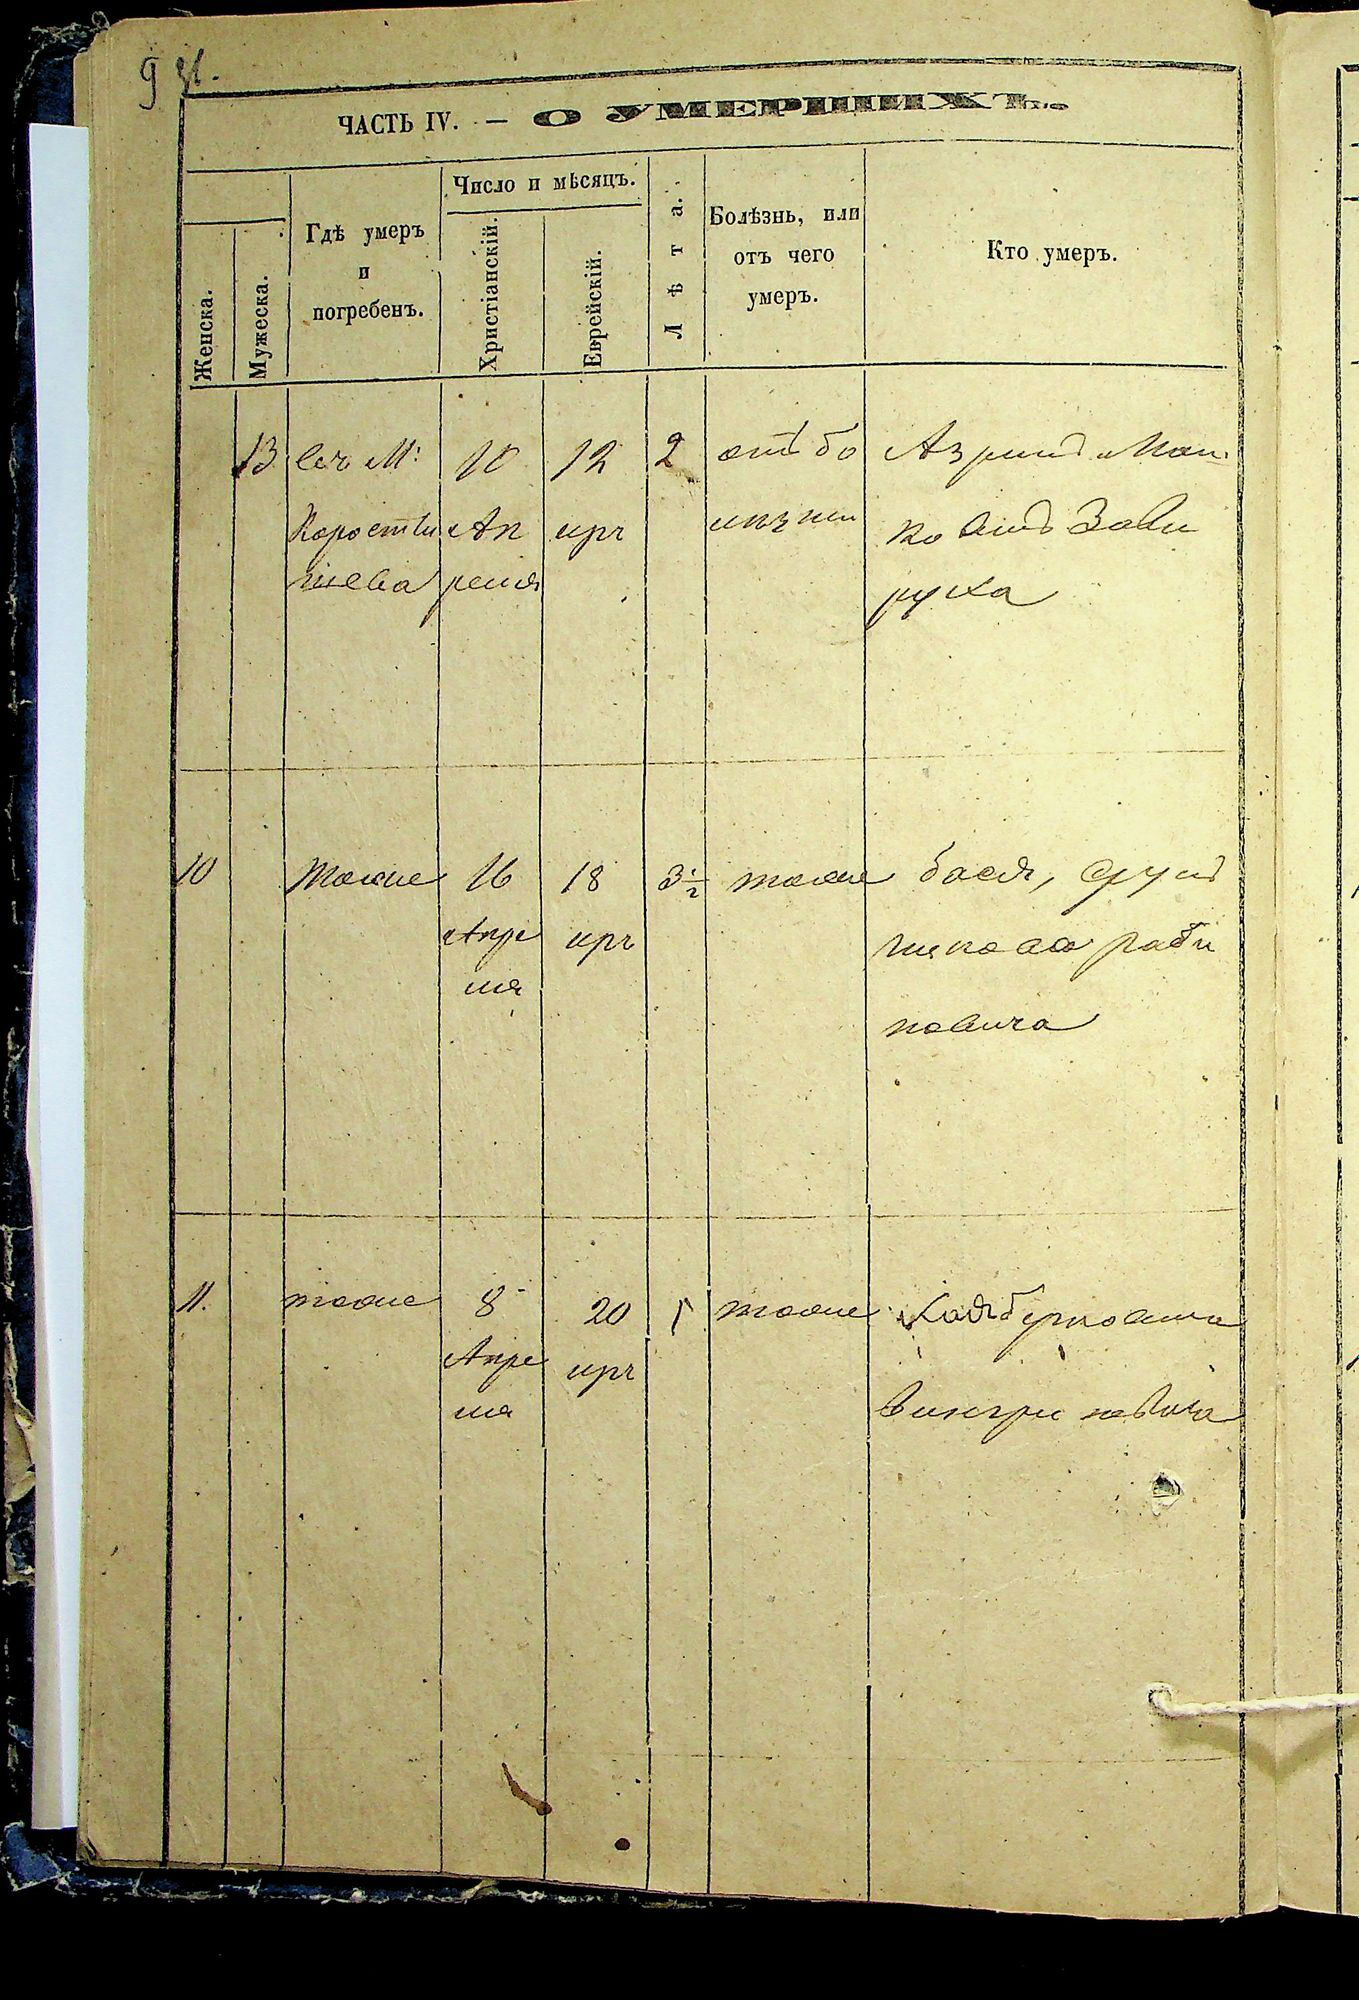 9
ЧАСТЬ IV. — О УМЕРШИХЪ.
Женска.
Мужеска.
Гдѣ умеръ
и
погребенъ.
Число и мѣсяцъ.
Христіанскій.
Еврейскій.
Лѣта.
Болѣзнь, или
отъ чего
умеръ.
Кто умеръ.
13
въ М:
Корости
шева
10
Ап
реля
12
иръ
2
отъ бо
лѣзни
Азриль
ковичъ
10
тоже
16
Апре
ля
18
иръ
3 1/2
тоже
бася,
Раби
новича
11.
тоже
8
Апре
ля
20
иръ
1
тоже
Хая берковича